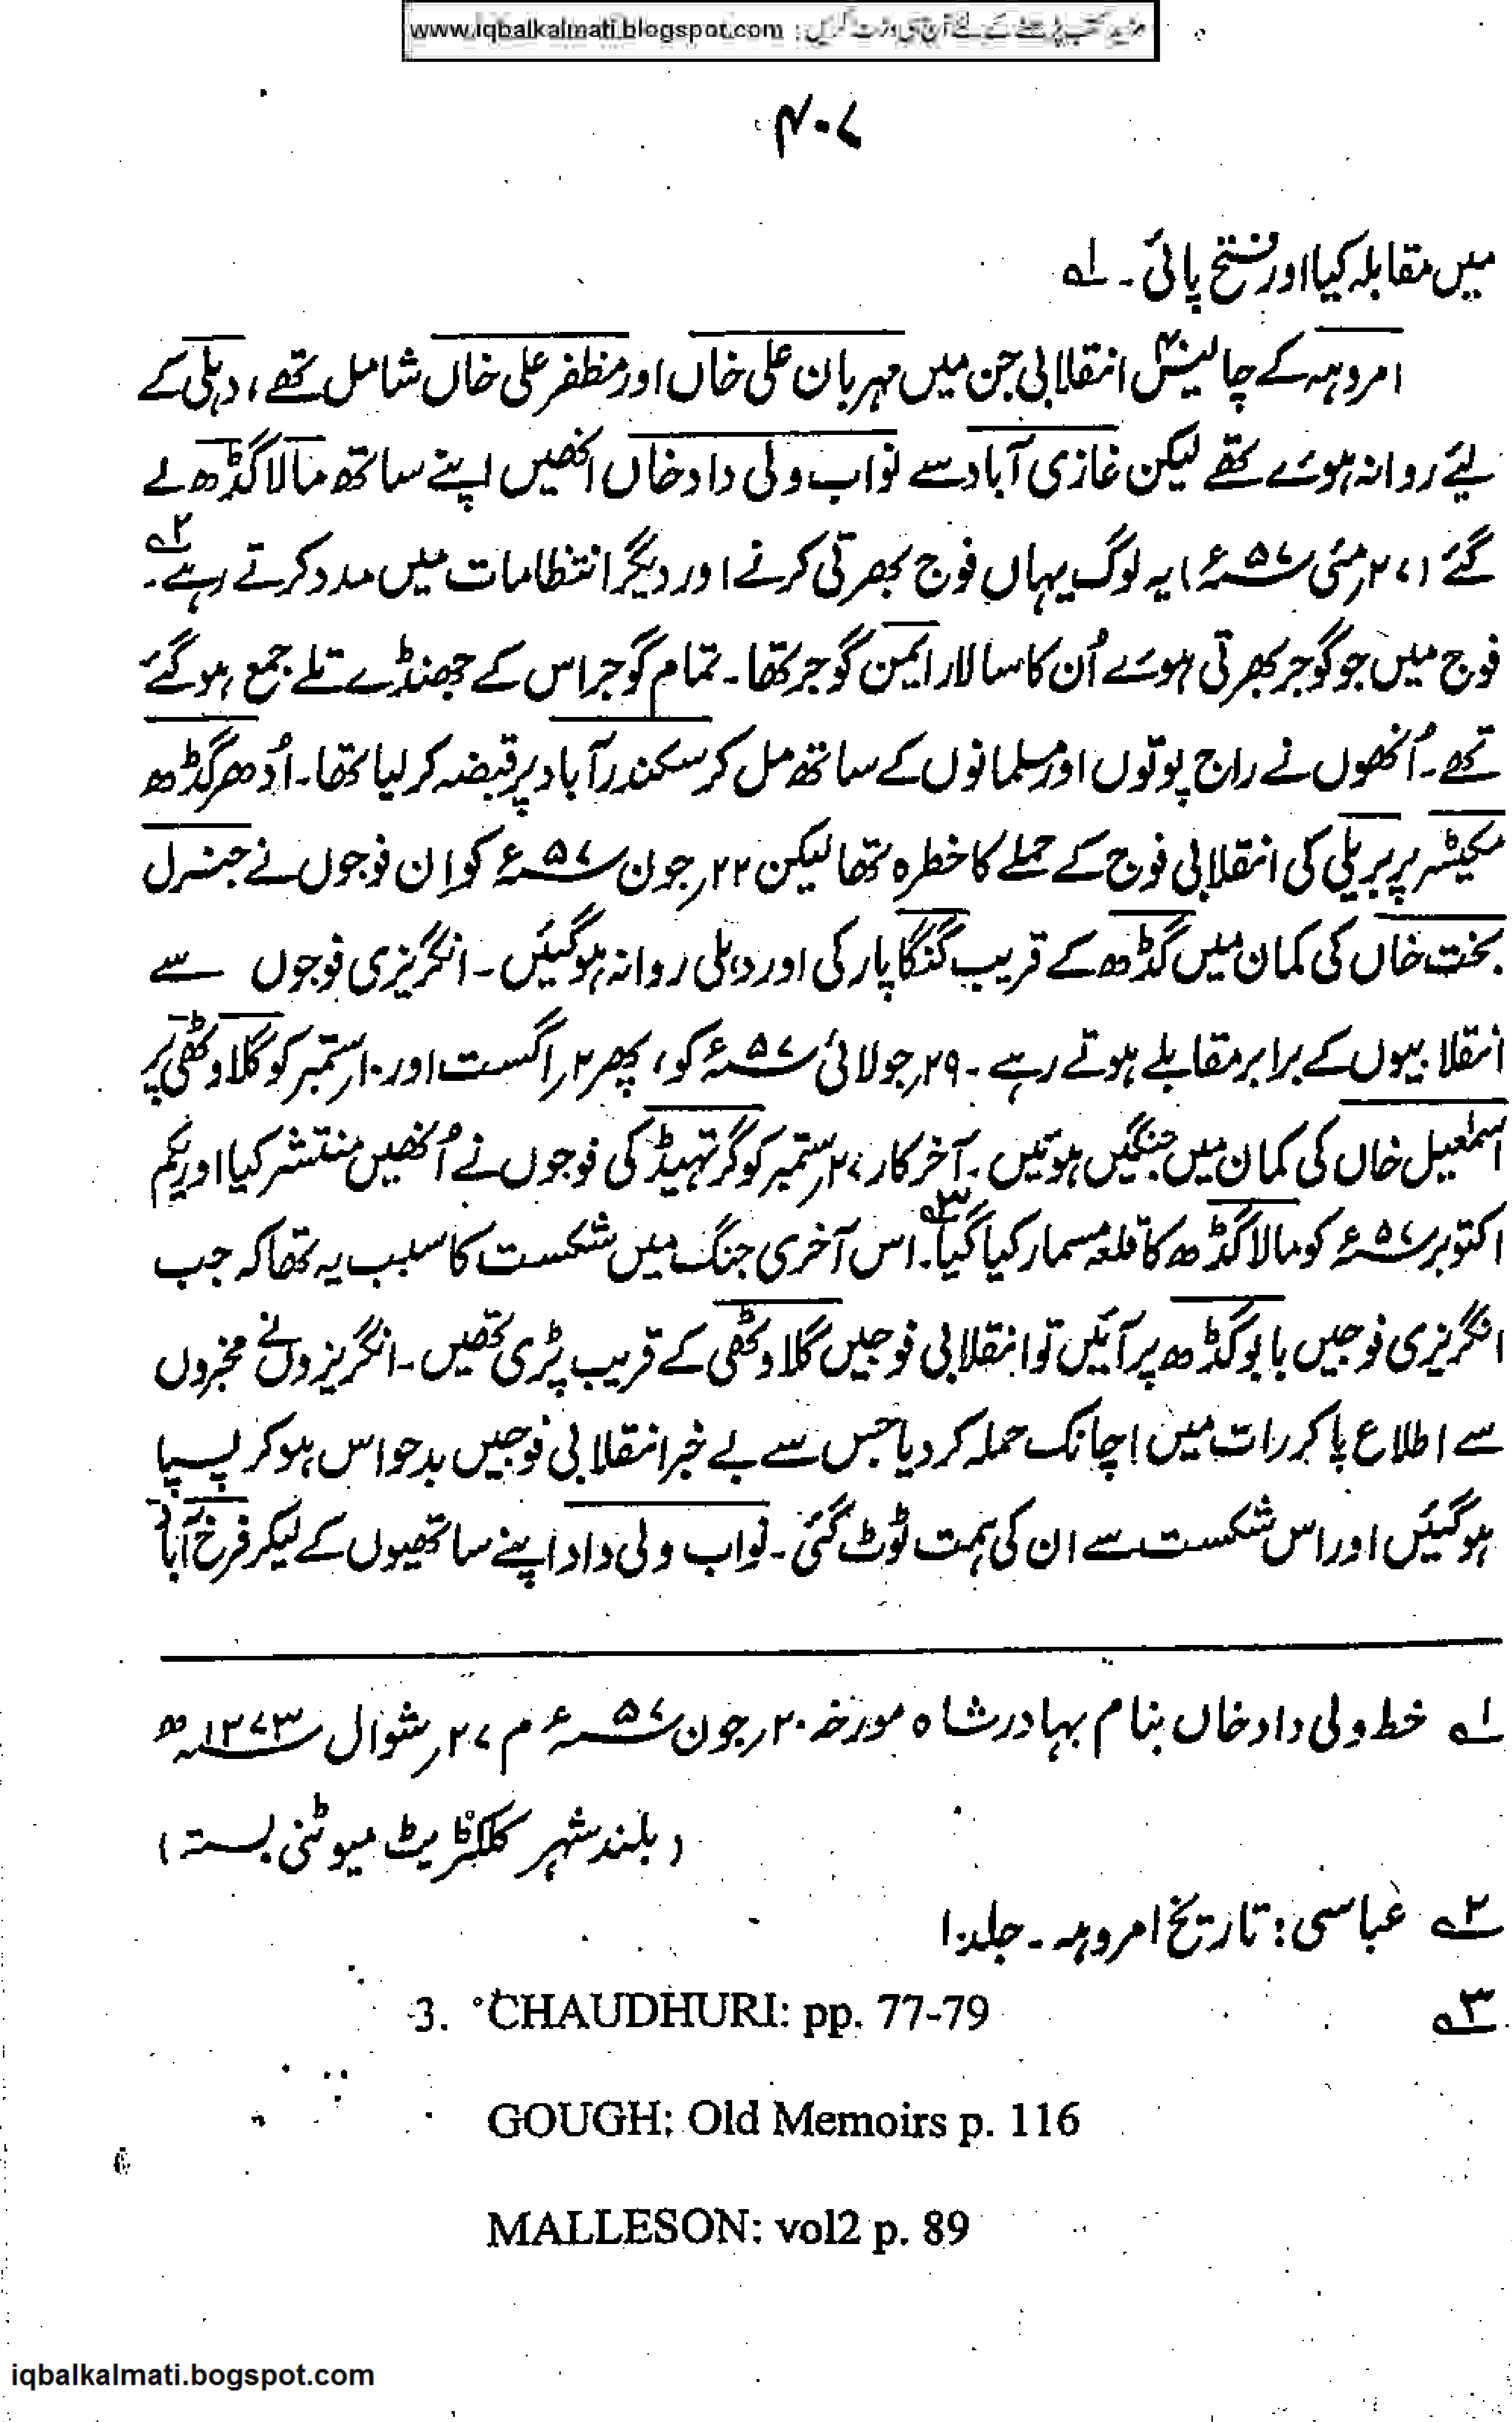 مزید کتب پڑھنے کے لئے آج ہی وزٹ کریں : www.iqbalkalmati.blogspot.com
۴۰۷
میں مقابلہ کیا اور فتح پائی۔ ۱ھ
امروہہ کے چالیس۴۰ انقلابی جن میں مہربان علی خاں اور مظفر علی خاں شامل تھے، دہلی کے
لیٔے روانہ ہوئے تھے لیکن غازی آباد سے نواب ولی داد خاں انھیں اپنے ساتھ مالاگڈھ لے
گئے (۲۷؍مئی ۵۷ء) یہ لوگ یہاں فوج بھرتی کرنے اور دیگر انتظامات میں مدد کرتے رہے۔ ۲ھ
فوج میں جو گوجر بھرتی ہوئے اُن کا سالار ایمن گوجر تھا۔ تمام گوجر اس کے جھنڈے تلے جمع ہو گئے
تھے۔ اُنھوں نے راج پوتوں اور مسلمانوں کے ساتھ مل کر سکندر آباد پر قبضہ کر لیا تھا۔ اُدھر گڈھ
مکٹیسر پر بریلی کی انقلابی فوج کے حملے کا خطرہ تھا لیکن ۲۲؍جون ۵۷ء کو ان فوجوں نے جنرل
بخت خاں کی کمان میں گڈھ کے قریب گنگا پار کی اور دہلی روانہ ہو گئیں۔ انگریزی فوجوں سے
انقلابیوں کے برابر مقابلے ہوتے رہے۔ ۲۹؍جولائی ۵۷ء کو، پھر ۲؍اگست اور ۱۰؍ستمبر کو گلاوٹھی پر
اسمٰعیل خاں کی کمان میں جنگیں ہوئیں۔ آخر کار ۲۷؍ستمبر کو گریتہیڈ کی فوجوں نے اُنھیں منتشر کیا اور یکم
اکتوبر ۵۷ء کو مالاگڈھ کا قلعہ مسمار کیا گیا۔ ۳ھ اس آخری جنگ میں شکست کا سبب یہ تھا کہ جب
انگریزی فوجیں بابوگڈھ پر آئیں تو انقلابی فوجیں گلاوٹھی کے قریب پڑی تھیں۔ انگریزوں نے مخبروں
سے اطلاع پا کر رات میں اچانک حملہ کر دیا جس سے بے خبر انقلابی فوجیں بدحواس ہو کر پسپا
ہو گئیں اور اس شکست سے ان کی ہمت ٹوٹ گئی۔ نواب ولی داد اپنے ساتھیوں کے لیکر فرخ آباد
۱ھ خط ولی داد خاں بنام بہادر شاہ مورخہ ۲۰؍جون ۵۷ء م ۲۷؍شوال ۱۲۷۳ھ
(بلند شہر کلکٹریٹ میوٹنی بستہ)
۲ھ عباسی: تاریخ امروہہ۔ جلد ۱
۳ھ 3. CHAUDHURI: pp. 77-79
GOUGH: Old Memoirs p. 116
MALLESON: vol2 p. 89
iqbalkalmati.bogspot.com